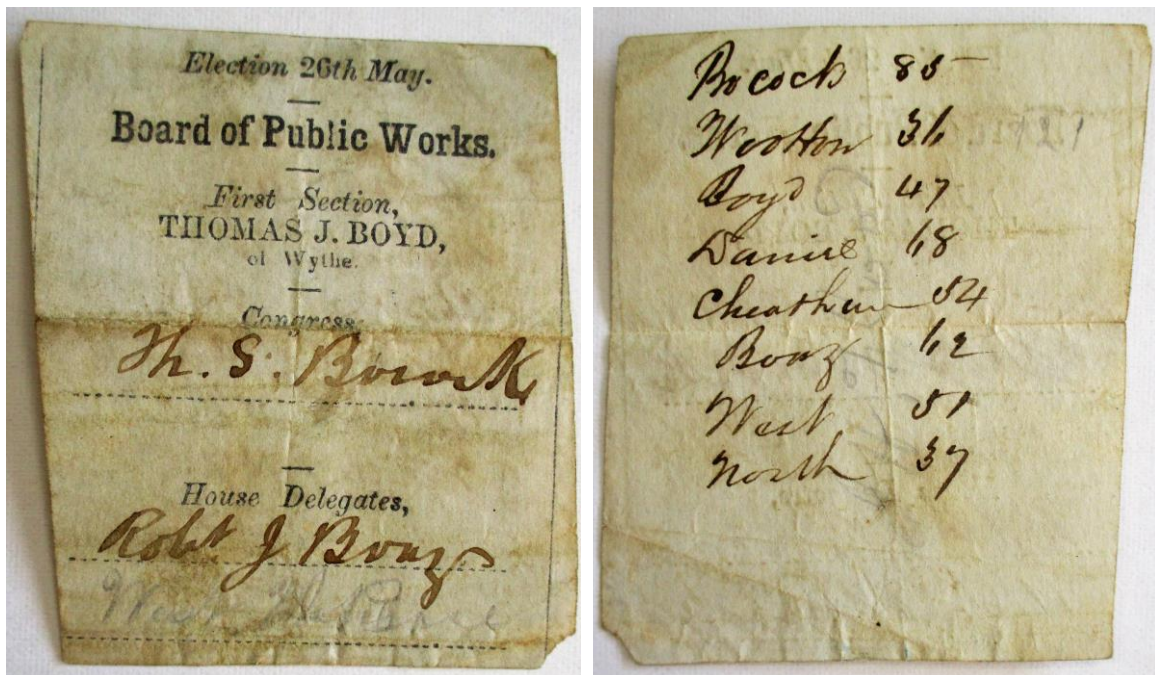 Election 26th May.
Board of Public Works.
First Section,
THOMAS J. BOYD,
of Wythe.
Congress,
Th. S. Bocock
House Delegates,
Robt J Boaz
Bocock 85
Wootton 36
Boyd 47
Daniel 68
Cheatham 54
Boaz 62
West 51
North 37